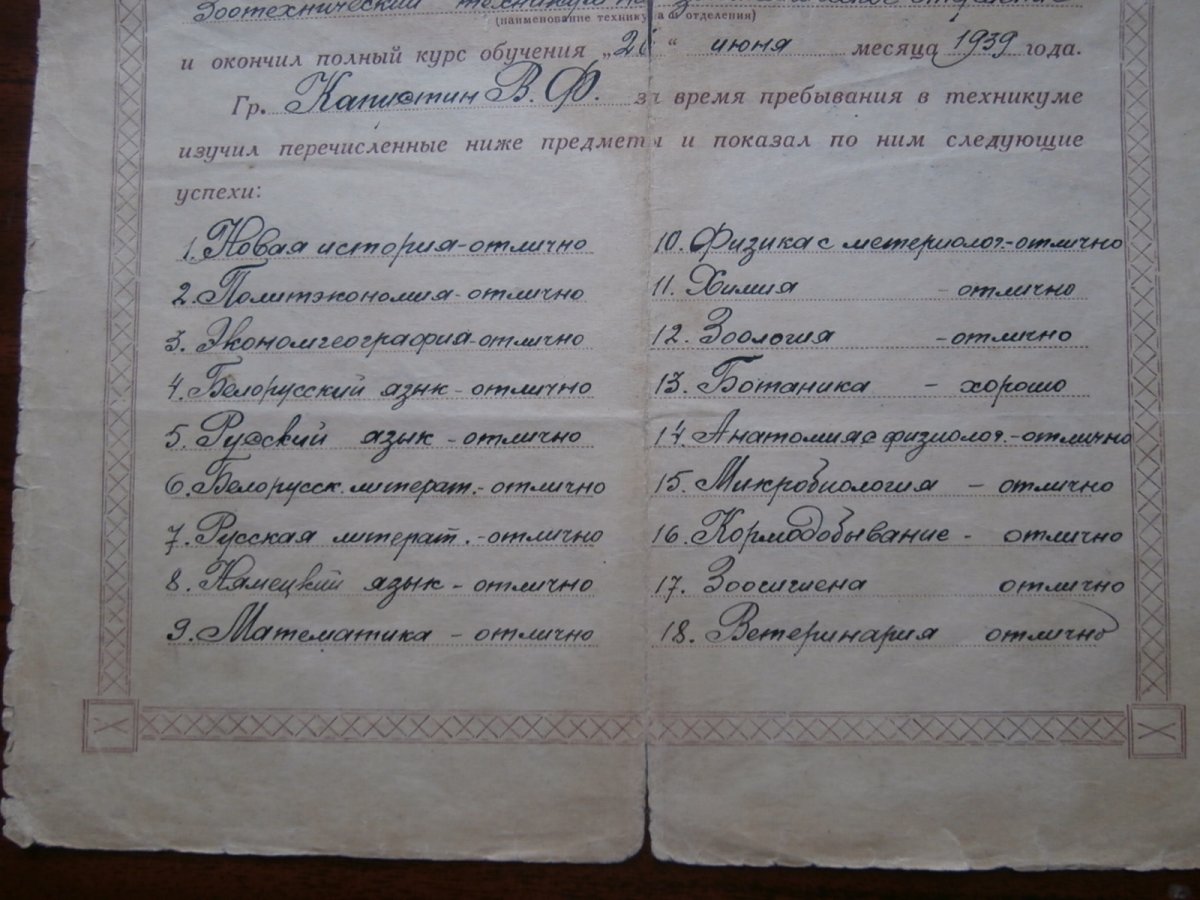 Зоотехнический техникум на отделение
(наименование техникума и отделения)
и окончил полный курс обучения „ “ июня месяца 1939 года.
Гр. Капистин В. Ф. за время пребывания в техникуме
изучил перечисленные ниже предметы и показал по ним следующие
успехи:
1. Новая история - отлично
2. Политэкономия - отлично
3. Экономгеография - отлично
4. Белорусский язык - отлично
5. Русский язык - отлично
6. Белорусск. литерат. - отлично
7. Русская литерат. - отлично
8. Нямецкий язык - отлично
9. Математика - отлично
10. Физика с метериолог. - отлично
11. Химия - отлично
12. Зоология - отлично
13. Ботаника - хорошо
14. Анатомия с физиолог. - отлично
15. Микробиология - отлично
16. Кормодобывание - отлично
17. Зоогигиена отлично
18. Ветеринария отлично